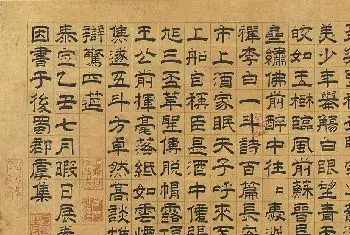 美少年舉觴白眼望青
皎如玉樹臨風前蘇晉
繡佛前醉中往
禪李白一斗詩百篇長
市上酒家眠天子呼來
上船自稱臣是酒中僊張
三草聖傳脫帽露
王公前揮毫落紙如雲
焦遂五斗方卓然高談
辯驚四筵
泰定乙丑七月暇日展
因書于後蜀郡虞集